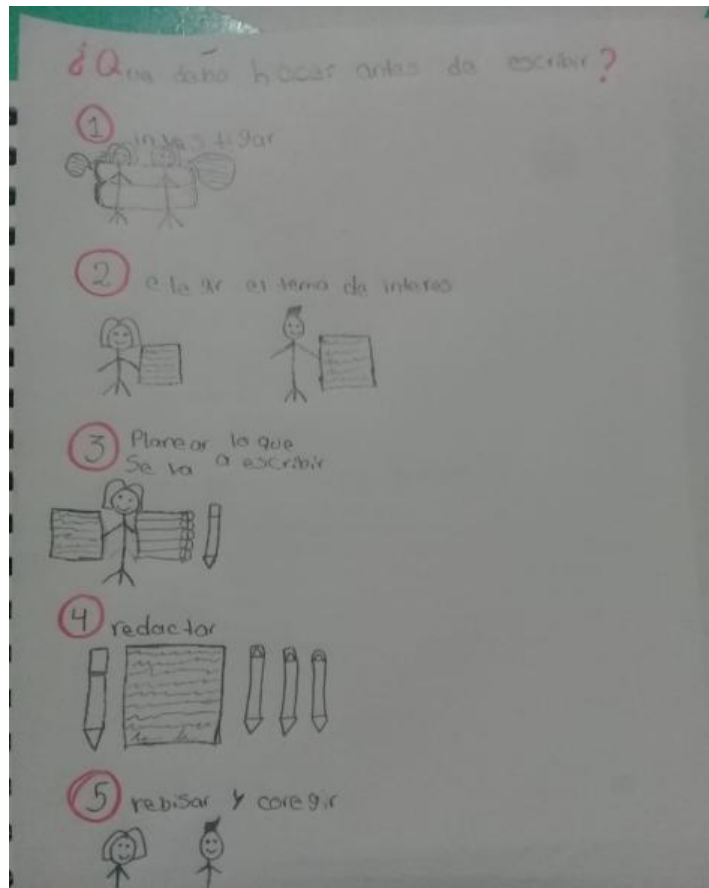 ¿Que debo hacer antes de escribir?
1 investigar
2 elegir el tema de interes
3 Planear lo que
Se va a escribir
4 redactar
5 rebisar y coregir